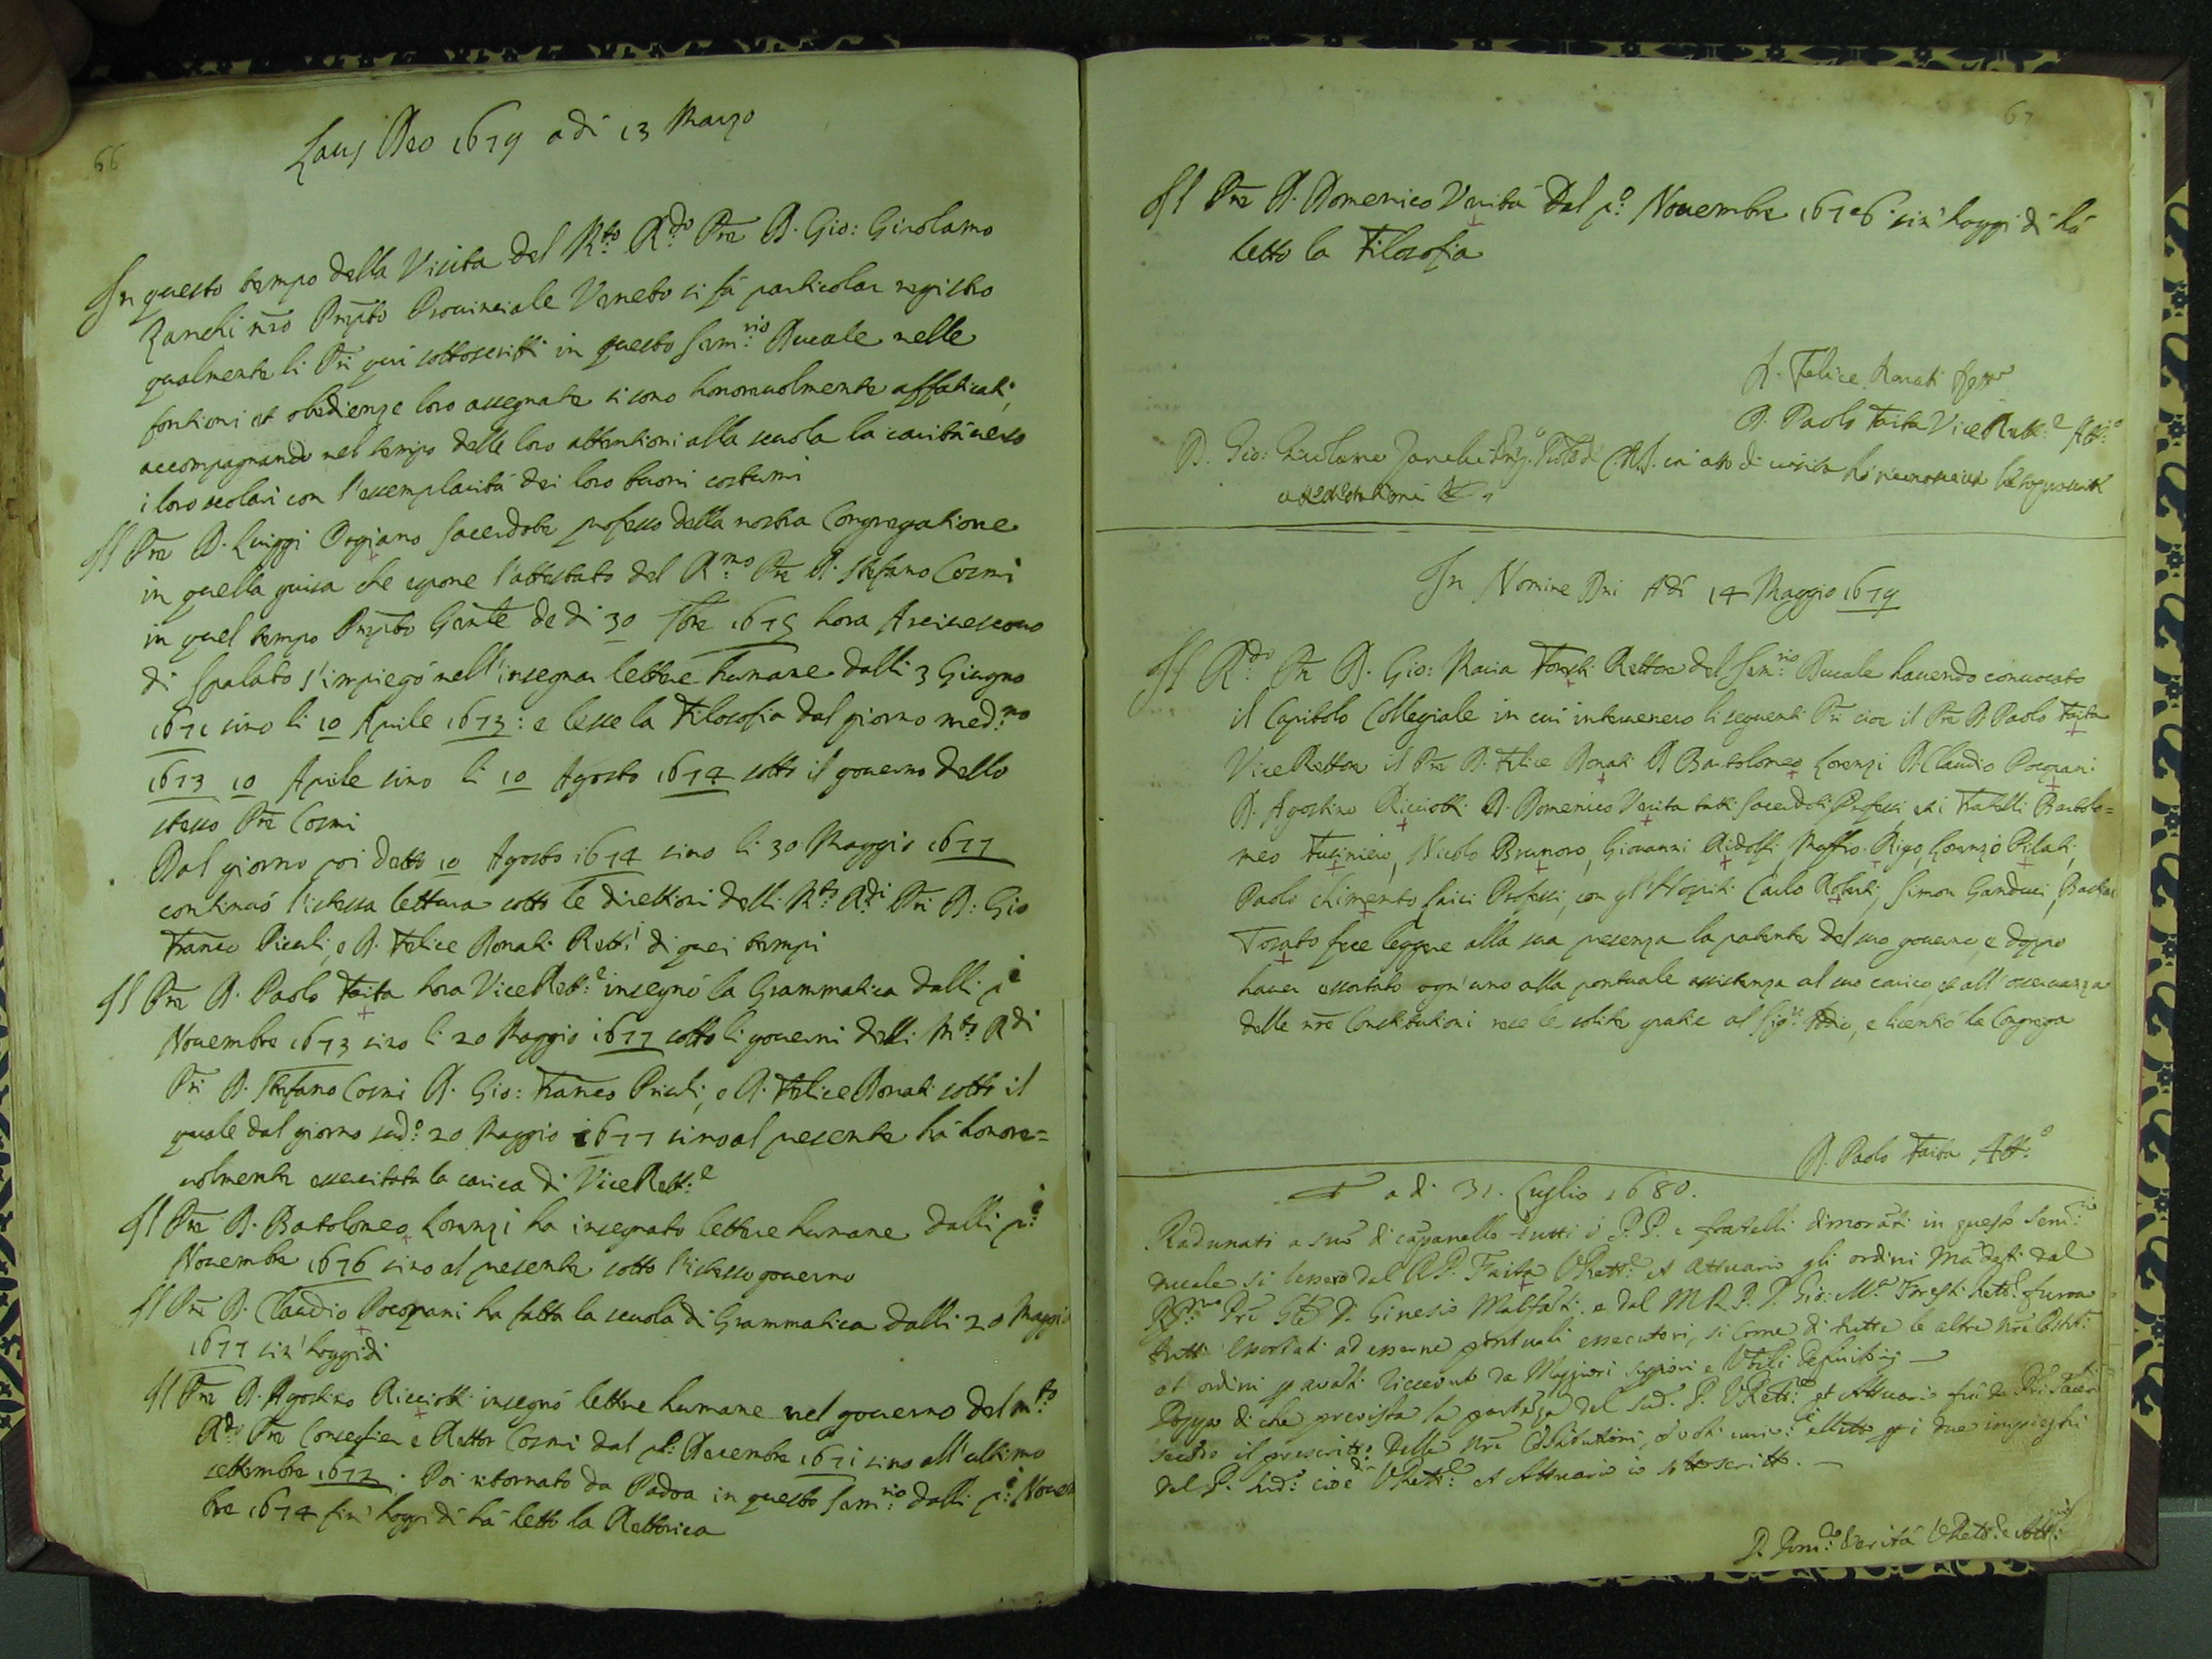 66
Laus Deo 1679 a di 13 Marzo
In questo tempo della Visita del M.to R.do Pre D. Gio: Girolamo
Zanchi nro Prepto Provinciale Veneto si fà particolar registro
qualmente li Pri qui sottoscritti in questo Sem:rio Ducale nelle
fontioni et obedienze loro assegnate si sono honorevolmente affaticati,
accompagnando nel tempo delle loro attentioni alla scuola la carità verso
i loro scolari con l'essemplarità dei loro buoni costumi
Il Pre D. Luiggi Orgiano Sacerdote professo della nostra Congregatione
in quella guisa che espone l'attestato del R.mo Pre D. Stefano Cosmi
in quel tempo Prepto Gente de di 30 7bre 1675 hora Arcivescovo
di Spalato s'impiegò nell'insegnar lettere humane dalli 3 Giugno
1671 sino li 10 Aprile 1673: e lesse la Filosofia dal giorno med.mo
1673 10 Aprile sino li 10 Agosto 1674 sotto il governo dello
stesso Pre Cosmi
Dal giorno poi detto 10 Agosto 1674 sino li 30 Maggio 1677
continuò l'istessa lettura sotto le direttioni delli M.to R.di Pri D: Gio
Franco Priuli, e D. Felice Donati Rett.i di quei tempi
Il Pre D. Paolo Faita hora Vice Rett:e insegnò la Grammatica dalli p.o
Novembre 1673 sino li 20 Maggio 1677 sotto li governi delli M.to R.di
Pri D. Stefano Cosmi D. Gio: Franco Priuli, e D. Felice Donati sotto il
quale dal giorno sud.o 20 Maggio 1677 sino al presente hà honore=
volmente essercitata la carica di Vice Rett:e
Il Pre D. Bartolomeo Lorenzi ha insegnato lettere humane dalli p.o
Novembre 1676 sino al presente sotto l'istesso governo
Il Pre D. Claudio Pocopani ha fatta la scuola di Grammatica dalli 20 Maggio
1677 sin' hoggidi
Il Pre D. Agostino Ricciotti insegnò lettere humane nel governo del M.to
R.do Pre Conseglier e Rettor Cosmi dal p.o Decembre 1671 sino all'ultimo
settembre 1672. Poi ritornato da Padoa in questo Sem:rio dalli p.o Novem
bre 1674 sin' hoggi dì hà letto la Rettorica
67
Il Pre D. Domenico Verità Dal p.o Novembre 1676 sin' hoggi dì hà
letto la Filosofia
D. Felice Donati Rettre
D. Paolo Faita Vice Rett:e Att:o
D. Gio: Girolamo Zanchi Prep. Prole di C.R.S. in atto di visita hò riconosciute le soprascritte
attestationi
In Nomine Dni Adì 14 Maggio 1679
Il R.do Pre D. Gio: Maria Foresti Rettore del Sem:rio Ducale havendo convocato
il Capitolo Collegiale in cui intervenero li seguenti Pri cioe il Pre D Paolo Faita
Vice Rettore il Pre D. Felice Donati D Bartolomeo Lorenzi D. Claudio Pocopani
D. Agostino Ricciotti D. Domenico Verita tutti Sacerdoti Professi et i Fratelli Bartolo=
meo Fusiniero, Nicolo Brunoro, Giovanni Ridolfi, Maffio Rigo, Lorenzo Pilati,
Paolo Chimento Laici Professi, con gl'Hospiti Carlo Roberti, Simon Ganduci, Bastian
Tosato fece leggere alla sua presenza la patente del suo governo, e doppo
haver essortato ogn'uno alla pontuale assistenza al suo carico, et all'osservanza
delle nre Constitutioni rese le solite gratie al Sig.re Iddio, e licentiò la Congrega
D. Paolo Faita Att:o
a di 31. Luglio 1680.
Radunati a suo di capanello tutti i P.P. e fratelli dimoranti in questo Sem:rio
ducale si lessero dal D.P. Faita VRett:e et Attuario gli ordini mandati dal
R:mo Pre Gle D. Ginesio Malfanti. e dal M R P. D. Gio: M.a Foresti Rett:e furono
tutti essortati ad esserne pontuali essecutori, si come di tutte le altre nre Costit:ni
et ordini p avanti riceevuti da Maggiori superiori e Vbli Definitorij
Doppo di che prevista la partenza del sud. P. VRett:e et Attuario fu da Pri Sacerdoti
secdo il prescritto delle nre Costitutioni, à voti uniti elletto p i due impieghi
del P. sud.o cioè di VRett:e et Attuario io sottoscritto.
D. Dom:co Verità VRett:e e Att:rio